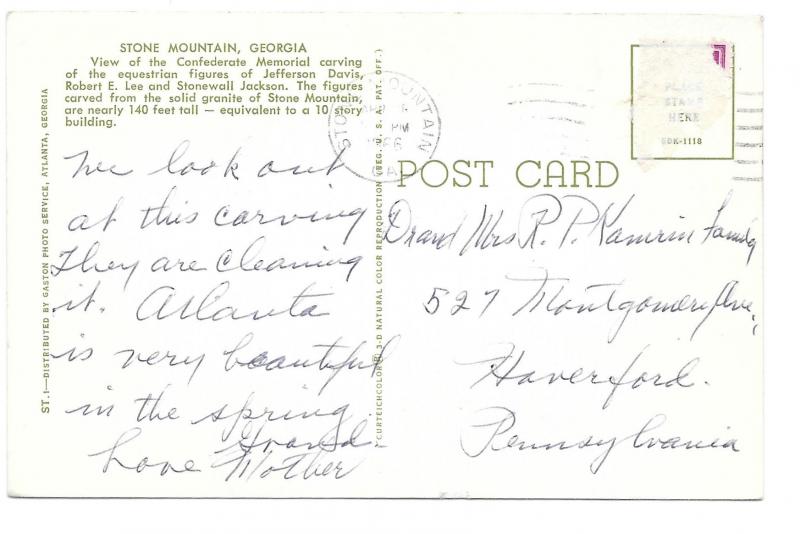 STONE MOUNTAIN, GEORGIA
View of the Confederate Memorial carving
of the equestrian figures of Jefferson Davis,
Robert E. Lee and Stonewall Jackson. The figures
carved from the solid granite of Stone Mountain,
are nearly 140 feet tall — equivalent to a 10 story
building.
We look out
at this carving
They are cleaning
it. Atlanta
is very beautiful
in the spring
Love Grand
Mother
ST.1—DISTRIBUTED BY GASTON PHOTO SERVICE, ATLANTA, GEORGIA
"CURTEICHCOLOR® 3-D NATURAL COLOR REPRODUCTION (REG. U. S. A. PAT. OFF.)
STONE MOUNTAIN
PM
GA
POST CARD
PLACE
STAMP
HERE
6DK-1118
Dr and Mrs R. P. Kamrin Family
527 Montgomery Ave,
Haverford.
Pennsylvania